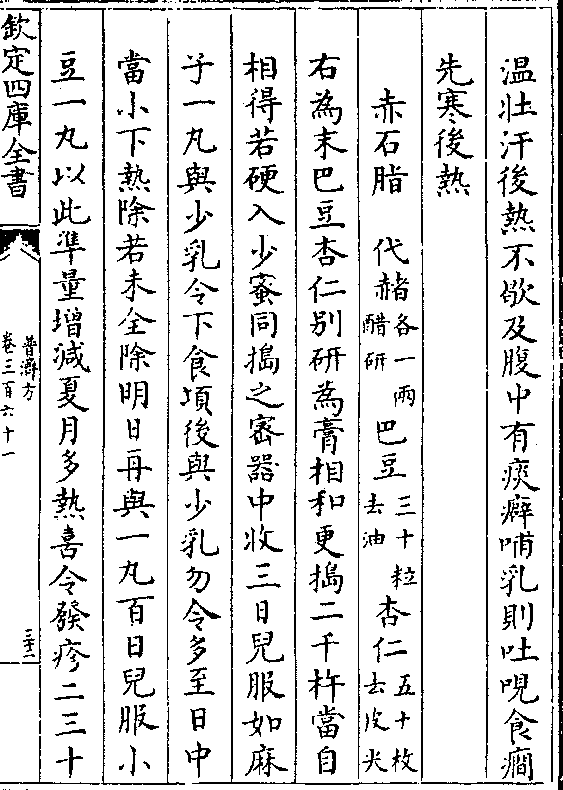 温壯汗後熱不歇及腹中有痰癖哺乳則吐哯食癇
先寒後熱
赤石脂　代赭各一兩醋研　巴豆三十粒去油　杏仁五十枚去皮尖
右為末巴豆杏仁别研為膏相和更搗二千杵當自
相得若硬入少蜜同搗之宻器中收三日兒服如麻
子一丸與少乳令下食頃後與少乳勿令多至日中
當小下熱除若未全除明日再與一丸百日兒服小
豆一丸以此準量增減夏月多熱喜令發疹二三十
欽定四庫全書
普濟方
卷三百六十一
三十二